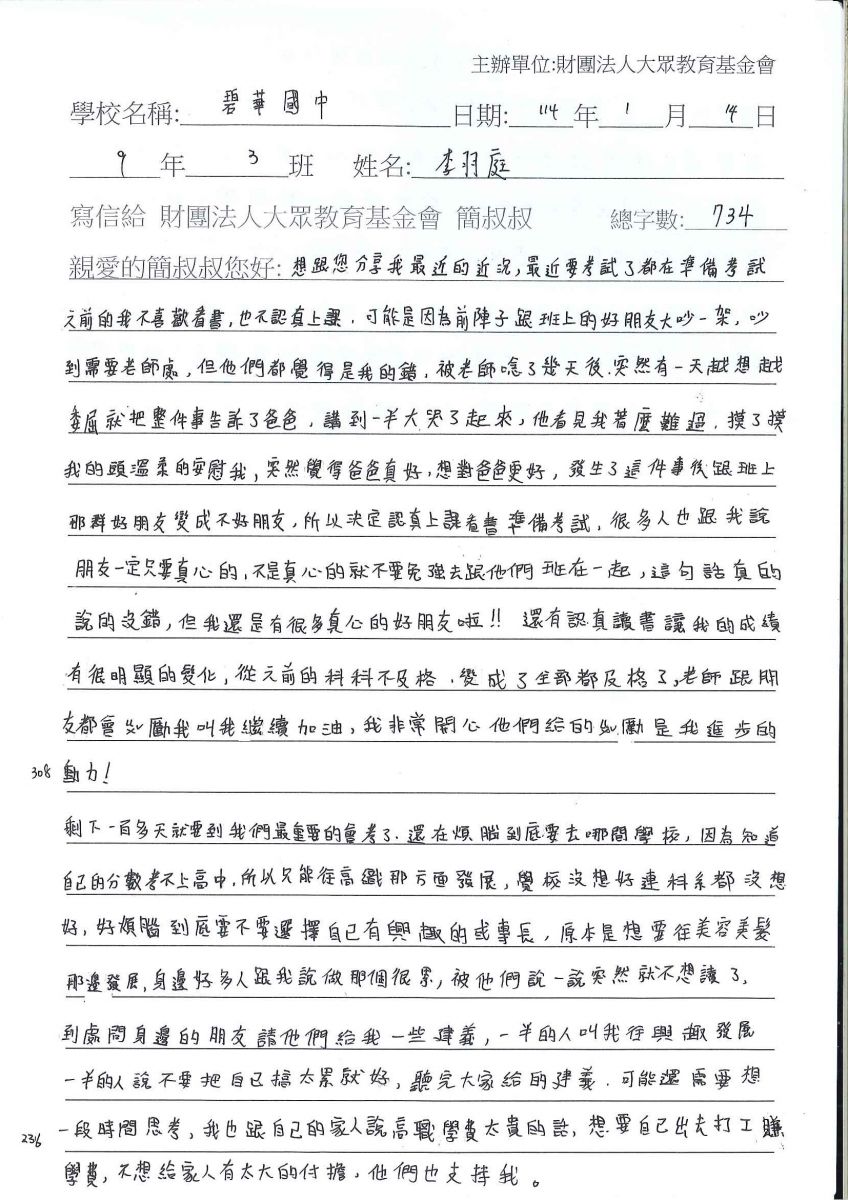 主辦單位:財團法人大眾教育基金會
學校名稱: 碧華國中 日期: 114 年 1 月 14 日
9 年 3 班 姓名: 李羽庭
寫信給 財團法人大眾教育基金會 簡叔叔 總字數: 734
親愛的簡叔叔您好: 想跟您分享我最近的近況,最近要考試了都在準備考試
之前的我不喜歡看書,也不認真上課.可能是因為前陣子跟班上的好朋友大吵一架,吵
到需要老師處,但他們都覺得是我的錯.被老師唸了幾天後.突然有一天越想越
委屈就把整件事告訴了爸爸,講到一半大哭了起來,他看見我著麼難過.摸了摸
我的頭溫柔的安慰我,突然覺得爸爸真好,想對爸爸更好,發生了這件事後跟班上
那群好朋友變成不好朋友,所以決定認真上課看書準備考試,很多人也跟我說
朋友一定只要真心的,不是真心的就不要免強去跟他們班在一起,這句話真的
說的沒錯,但我還是有很多真心的好朋友啦!! 還有認真讀書讓我的成績
有很明顯的變化,從之前的科科不及格.變成了全部都及格了,老師跟朋
友都會勵我叫我繼續加油,我非常開心他們給的勵是我進步的
308 動力!
剩下一百多天就要到我們最重要的會考了.還在煩腦到底要去哪間學校,因為知道
自己的分數考不上高中,所以只能從高職那方面發展,學校沒想好連科系都沒想
好,好煩腦到底要不要選擇自己有興趣的或專長,原本是想要往美容美髮
那邊發展,身邊好多人跟我說做那個很累,被他們說一說突然就不想讀了,
到處問身邊的朋友請他們給我一些建義,一半的人叫我往興趣發展
一半的人說不要把自己搞太累就好,聽完大家給的建義.可能還需要想
236 一段時間思考,我也跟自己的家人說高職學費太貴的話,想要自己出去打工賺
學費,不想給家人有太大的付擔,他們也支持我。